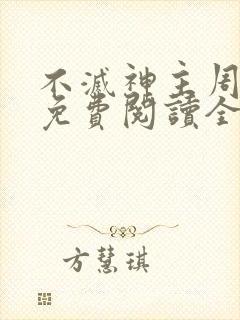 不滅神主周
免費閱讀全
方慧琪